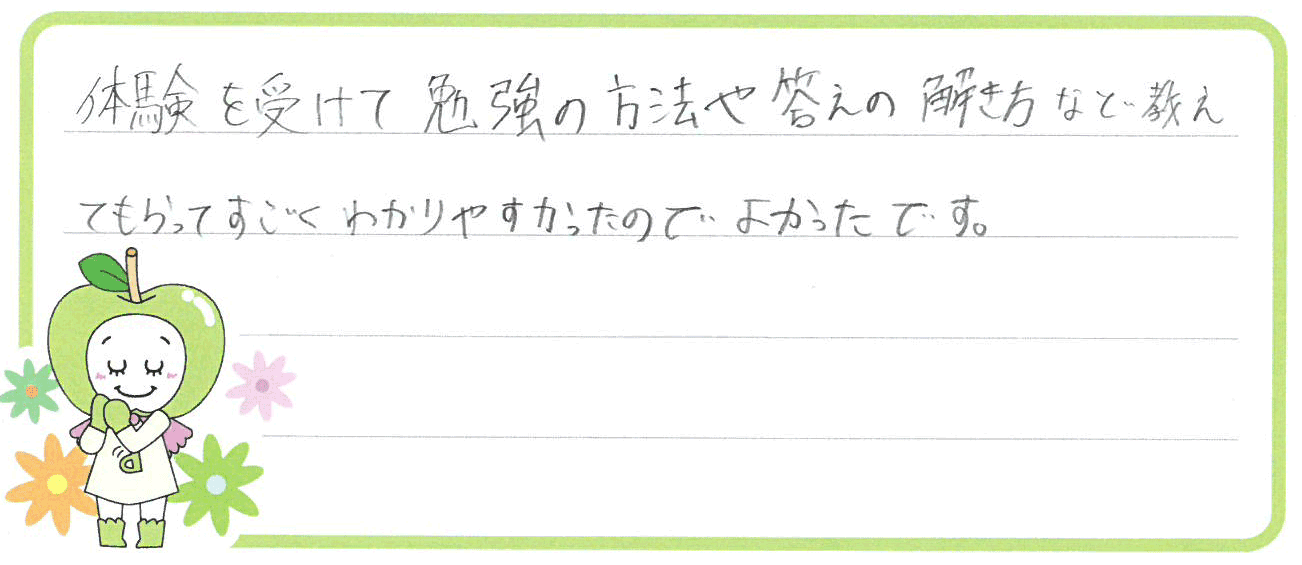 体験を受けて勉強の方法や答えの解き方など教え
てもらってすごくわかりやすかったのでよかったです。